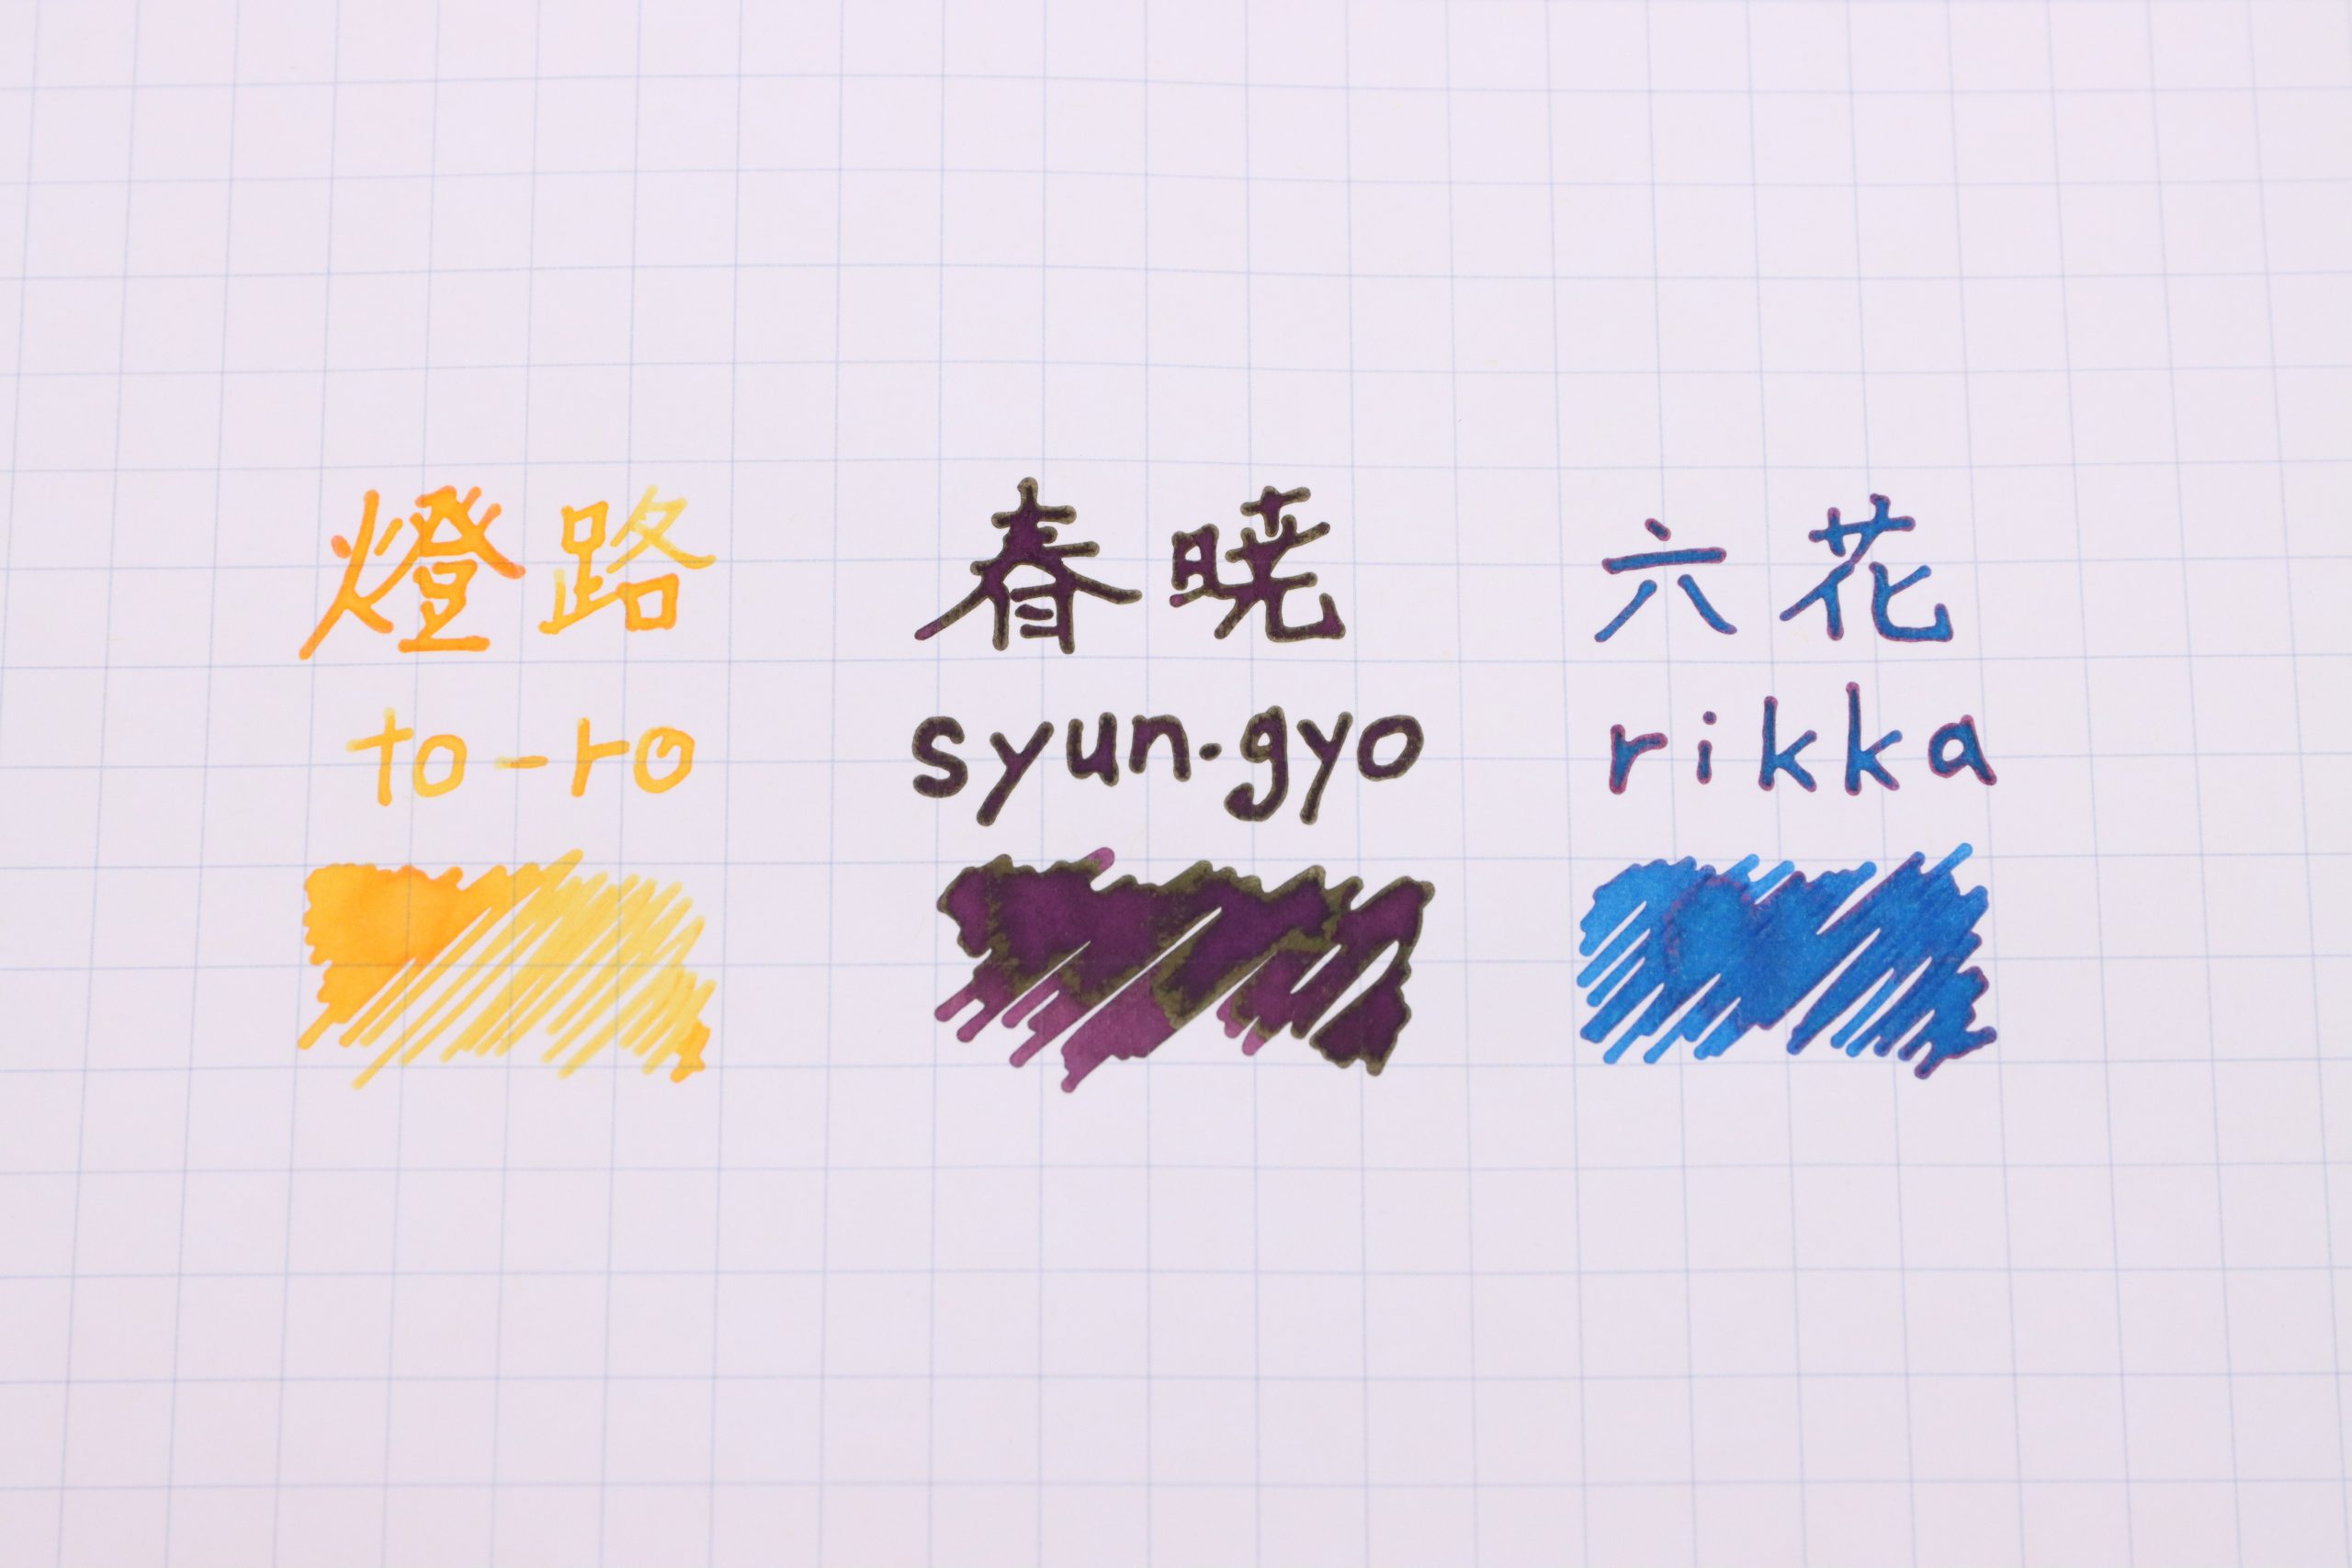 燈路 春暁 六花
to-ro syun·gyo rikka